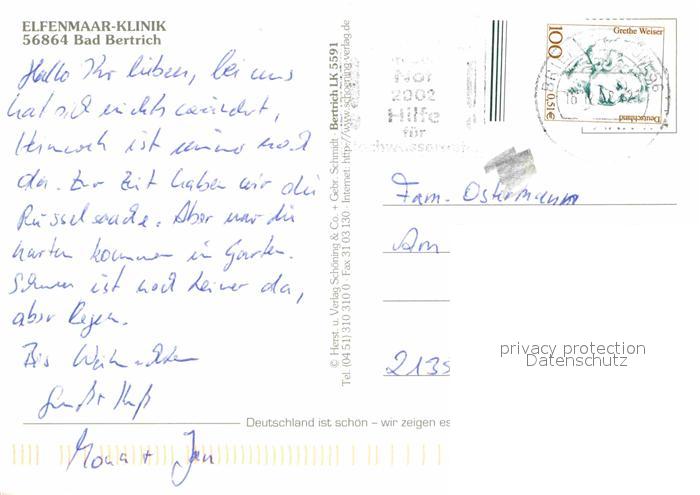 ELFENMAAR-KLINIK
56864 Bad Bertrich
Hallo Ihr lieben, bei uns
hat sich nichts verändert,
ist immer noch
da. Zur Zeit haben wir die
Rüssel Aber nur die
harten kommen in Garten.
ist noch keiner da,
aber Regen.
Bis Weihnachten
Gruß + Kuß
Mona + Jan
© Herst. u. Verlag Schöning & Co. + Gebr. Schmidt Bertrich LK 5591
Tel. (04 51) 310 310 0 · Fax 31 03 130 · Internet: http://www.schoening-verlag.de
Deutschland ist schön – wir zeigen es
Nor
2002
Hilfe
für
Grethe Weiser
100
0,51€
Deutschland
Fam. Ostermann
Am
2135
privacy protection
Datenschutz